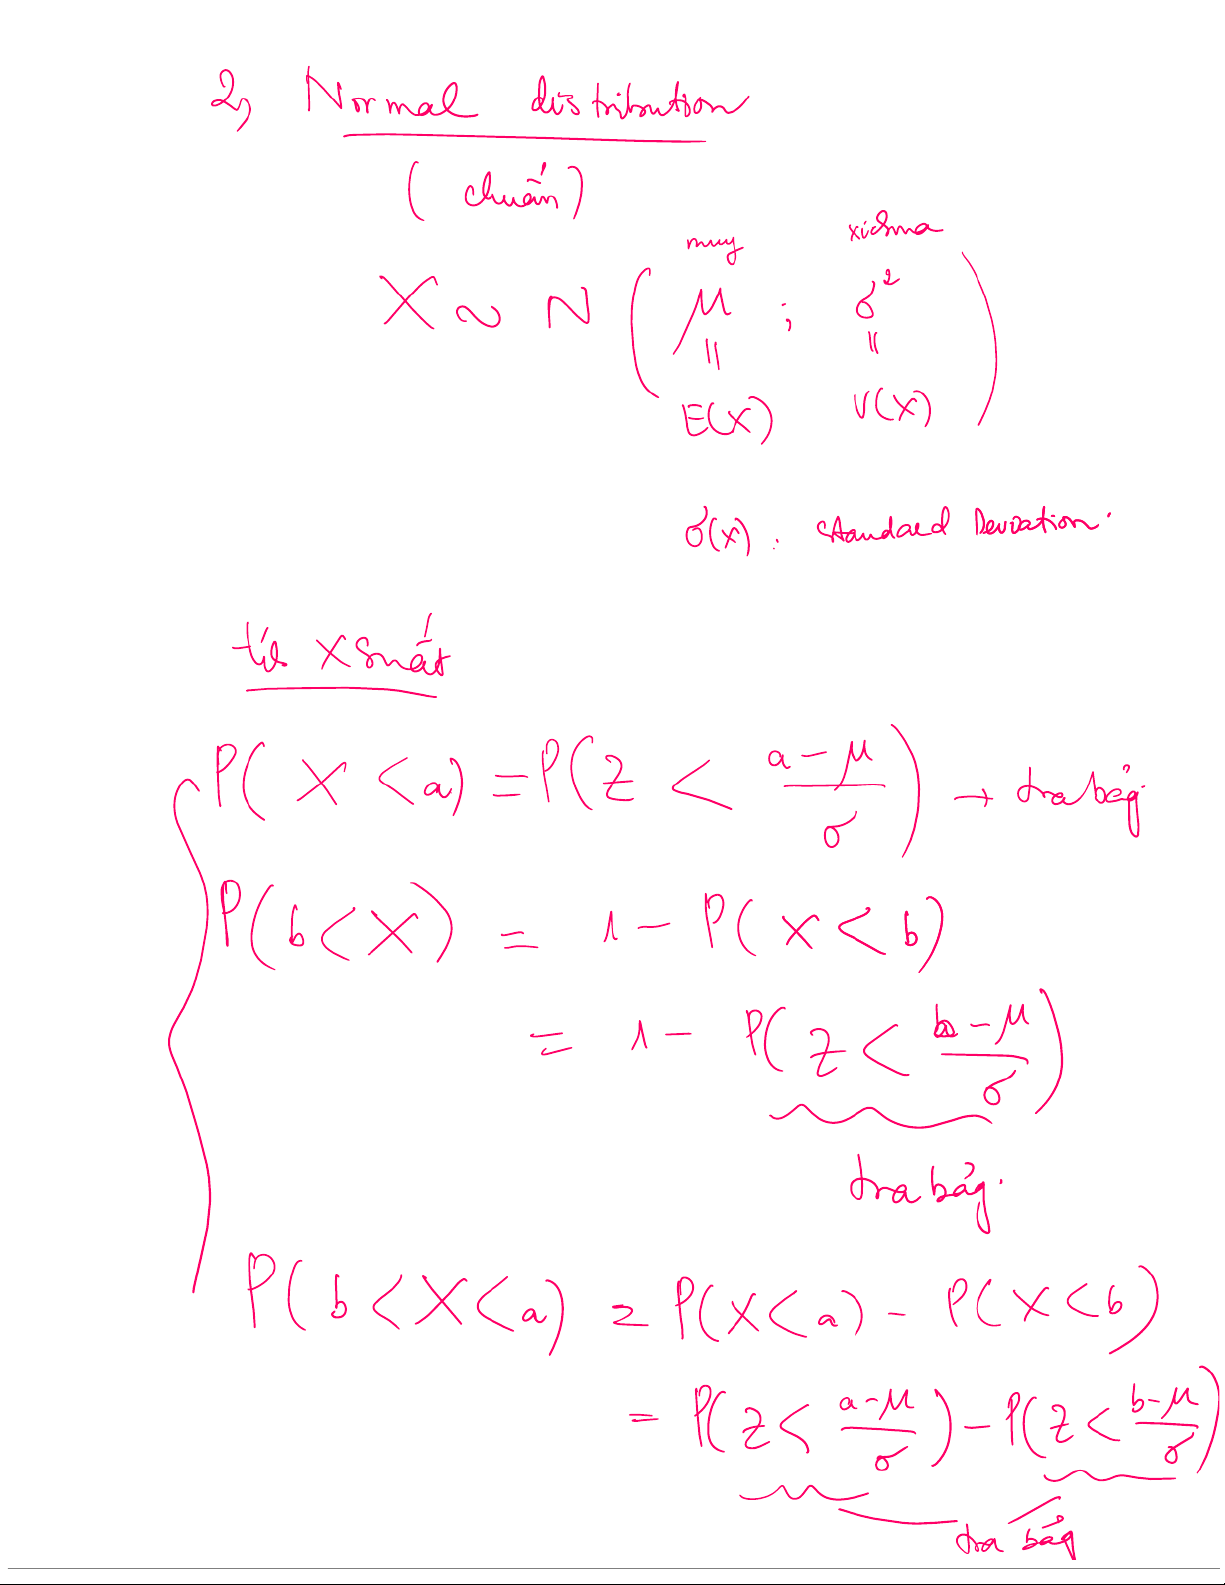 2, Normal distribution
(chuẩn)
muy xichma
X ~ N ( μ ; σ² )
= =
E(X) V(X)
σ(x) : Standard Deviation.
xsuất
P( X < a) = P( Z < (a-μ)/σ ) → tra bảg
P(b < X) = 1 - P( X < b)
= 1 - P( Z < (b-μ)/σ )
tra bảg.
P( b < X < a) = P(X < a) - P( X < b)
= P( Z < (a-μ)/σ ) - P( Z < (b-μ)/σ )
tra bảg